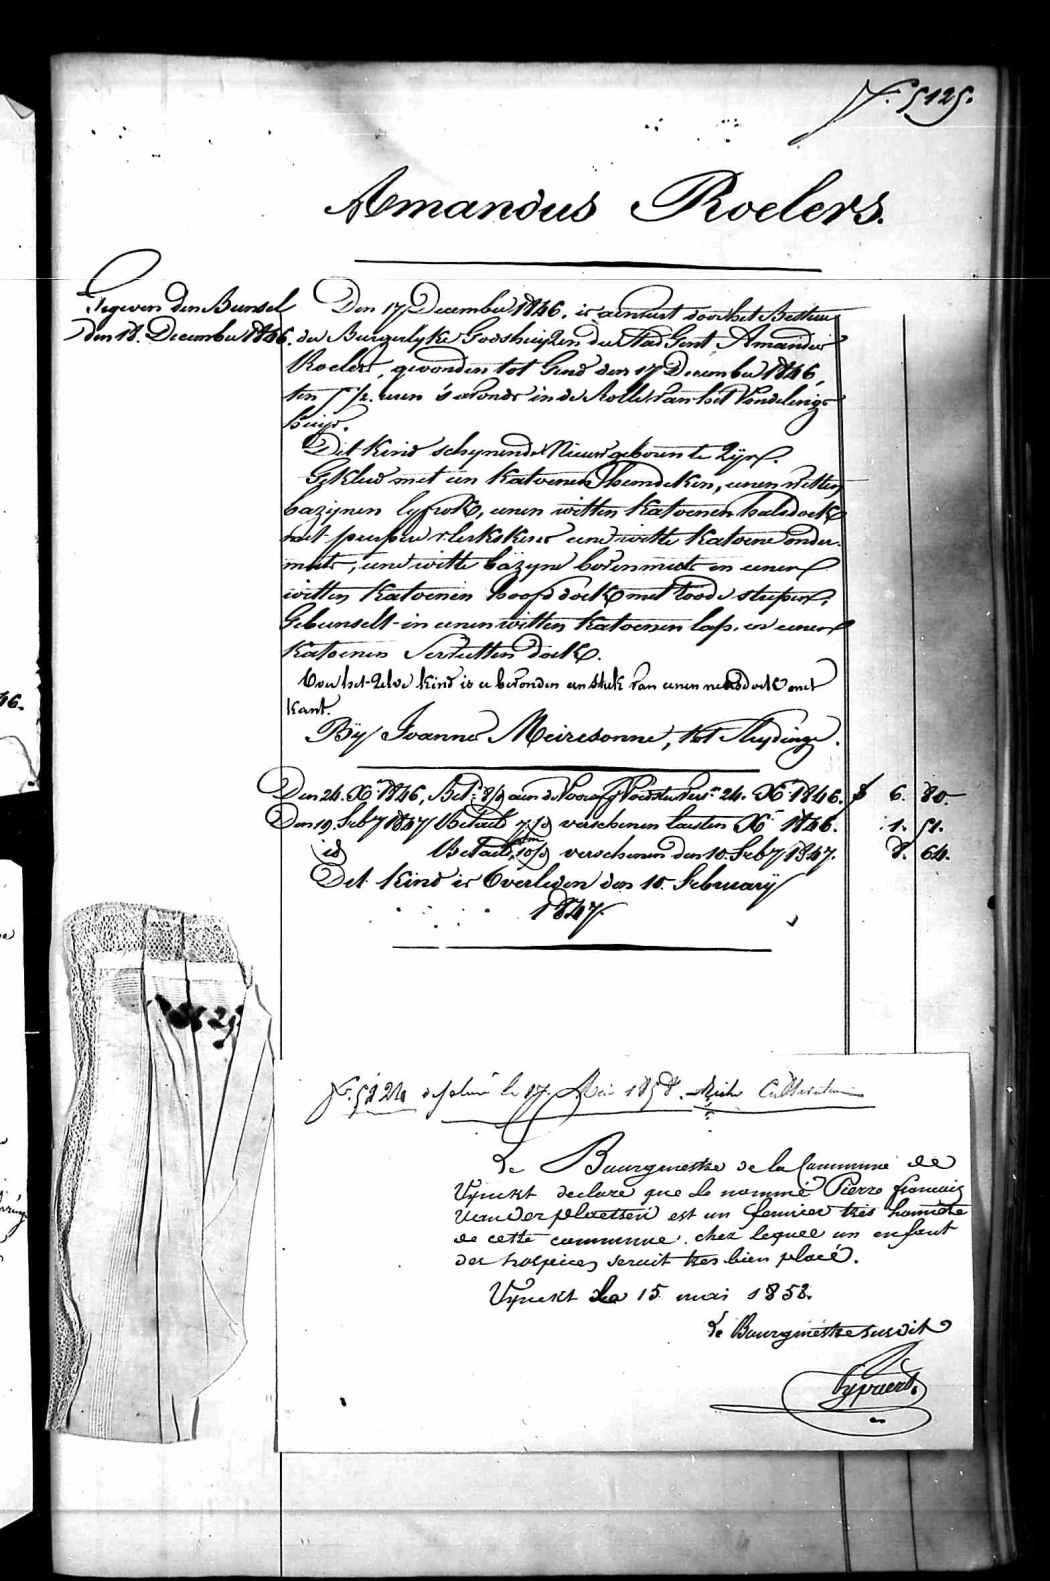 N.° 5125.
Amandus Roelers.
Gegeven den Bunsel
Den 18. December 1846.
Den 17 December 1846, is aenveirt door het Bestier
der Burgerlyke Godshuyzen der Stad Gent Amandus
Roelers, gevonden tot Gend den 17 December 1846,
ten 5 1/2. uren 's avonds in de Rolle van het Vondelings
huijs.
Dit kind schynende Nieuwgeboren te Zyn.
Gekleed met een katoenen hemdeken, eenen witten
bazynen lyfrok, eenen witten katoenen halsdoek
met peirpere vlerkskens eene witte katoene onder-
muts, eene witte bazyne bovenmuts en eenen
witten katoenen hoofddoek met roode strepen,
Gebunselt in eenen witten katoenen lap, en eenen
katoenen Servietten doek.
Over het Zelve kind is er bevonden een stuk van eenen neusdoek met
kant.
Bÿ Joanna Meiresonne, tot Sleydinge.
Den 24. Xb 1846, Bet. aen de Voorsz Voedster 24. Xb 1846. f 6. 80.
Den 19. Feby 1847 Betaelt verschenen laesten Xb 1846. 1. 51.
id Betaelt verschenen den 10. Feby 1847. 8. 64.
Dit kind is Overleden den 10. February
1847.
N.° 5124 déplacé le 17. Mai 1858.
Le Bourgmestre de la Commune de
Vynckt declare que le nommé Pierre francois
Vanderplaetsen est un fermier très honnête
de cette commune. chez lequel un enfant
des hospices serait tres bien placé.
Vynckt le 15 mai 1858.
le Bourgmestre susdit